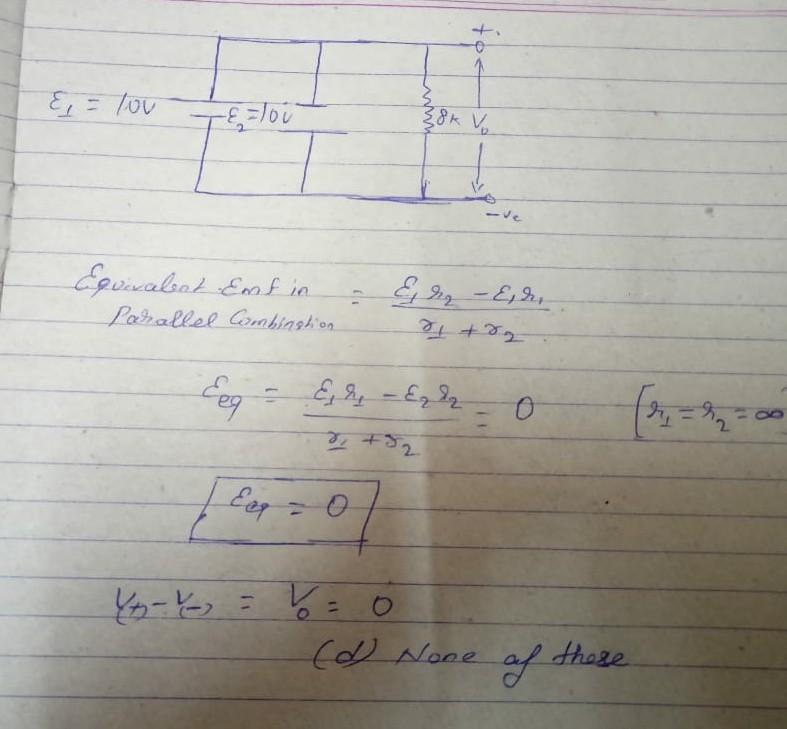 +.
ε₁ = 10V
ε₂ = 10V
8K V₀
-ve
Equivalent Emf in = ε₁ r₂ - ε₁ r₁
Parallel Combination r₁ + r₂
εeq = ε₁ r₁ - ε₂ r₂ = 0 [r₁ = r₂ = ∞
r₁ + r₂
εeq = 0
V(+) - V(-) = V₀ = 0
(d) None of these